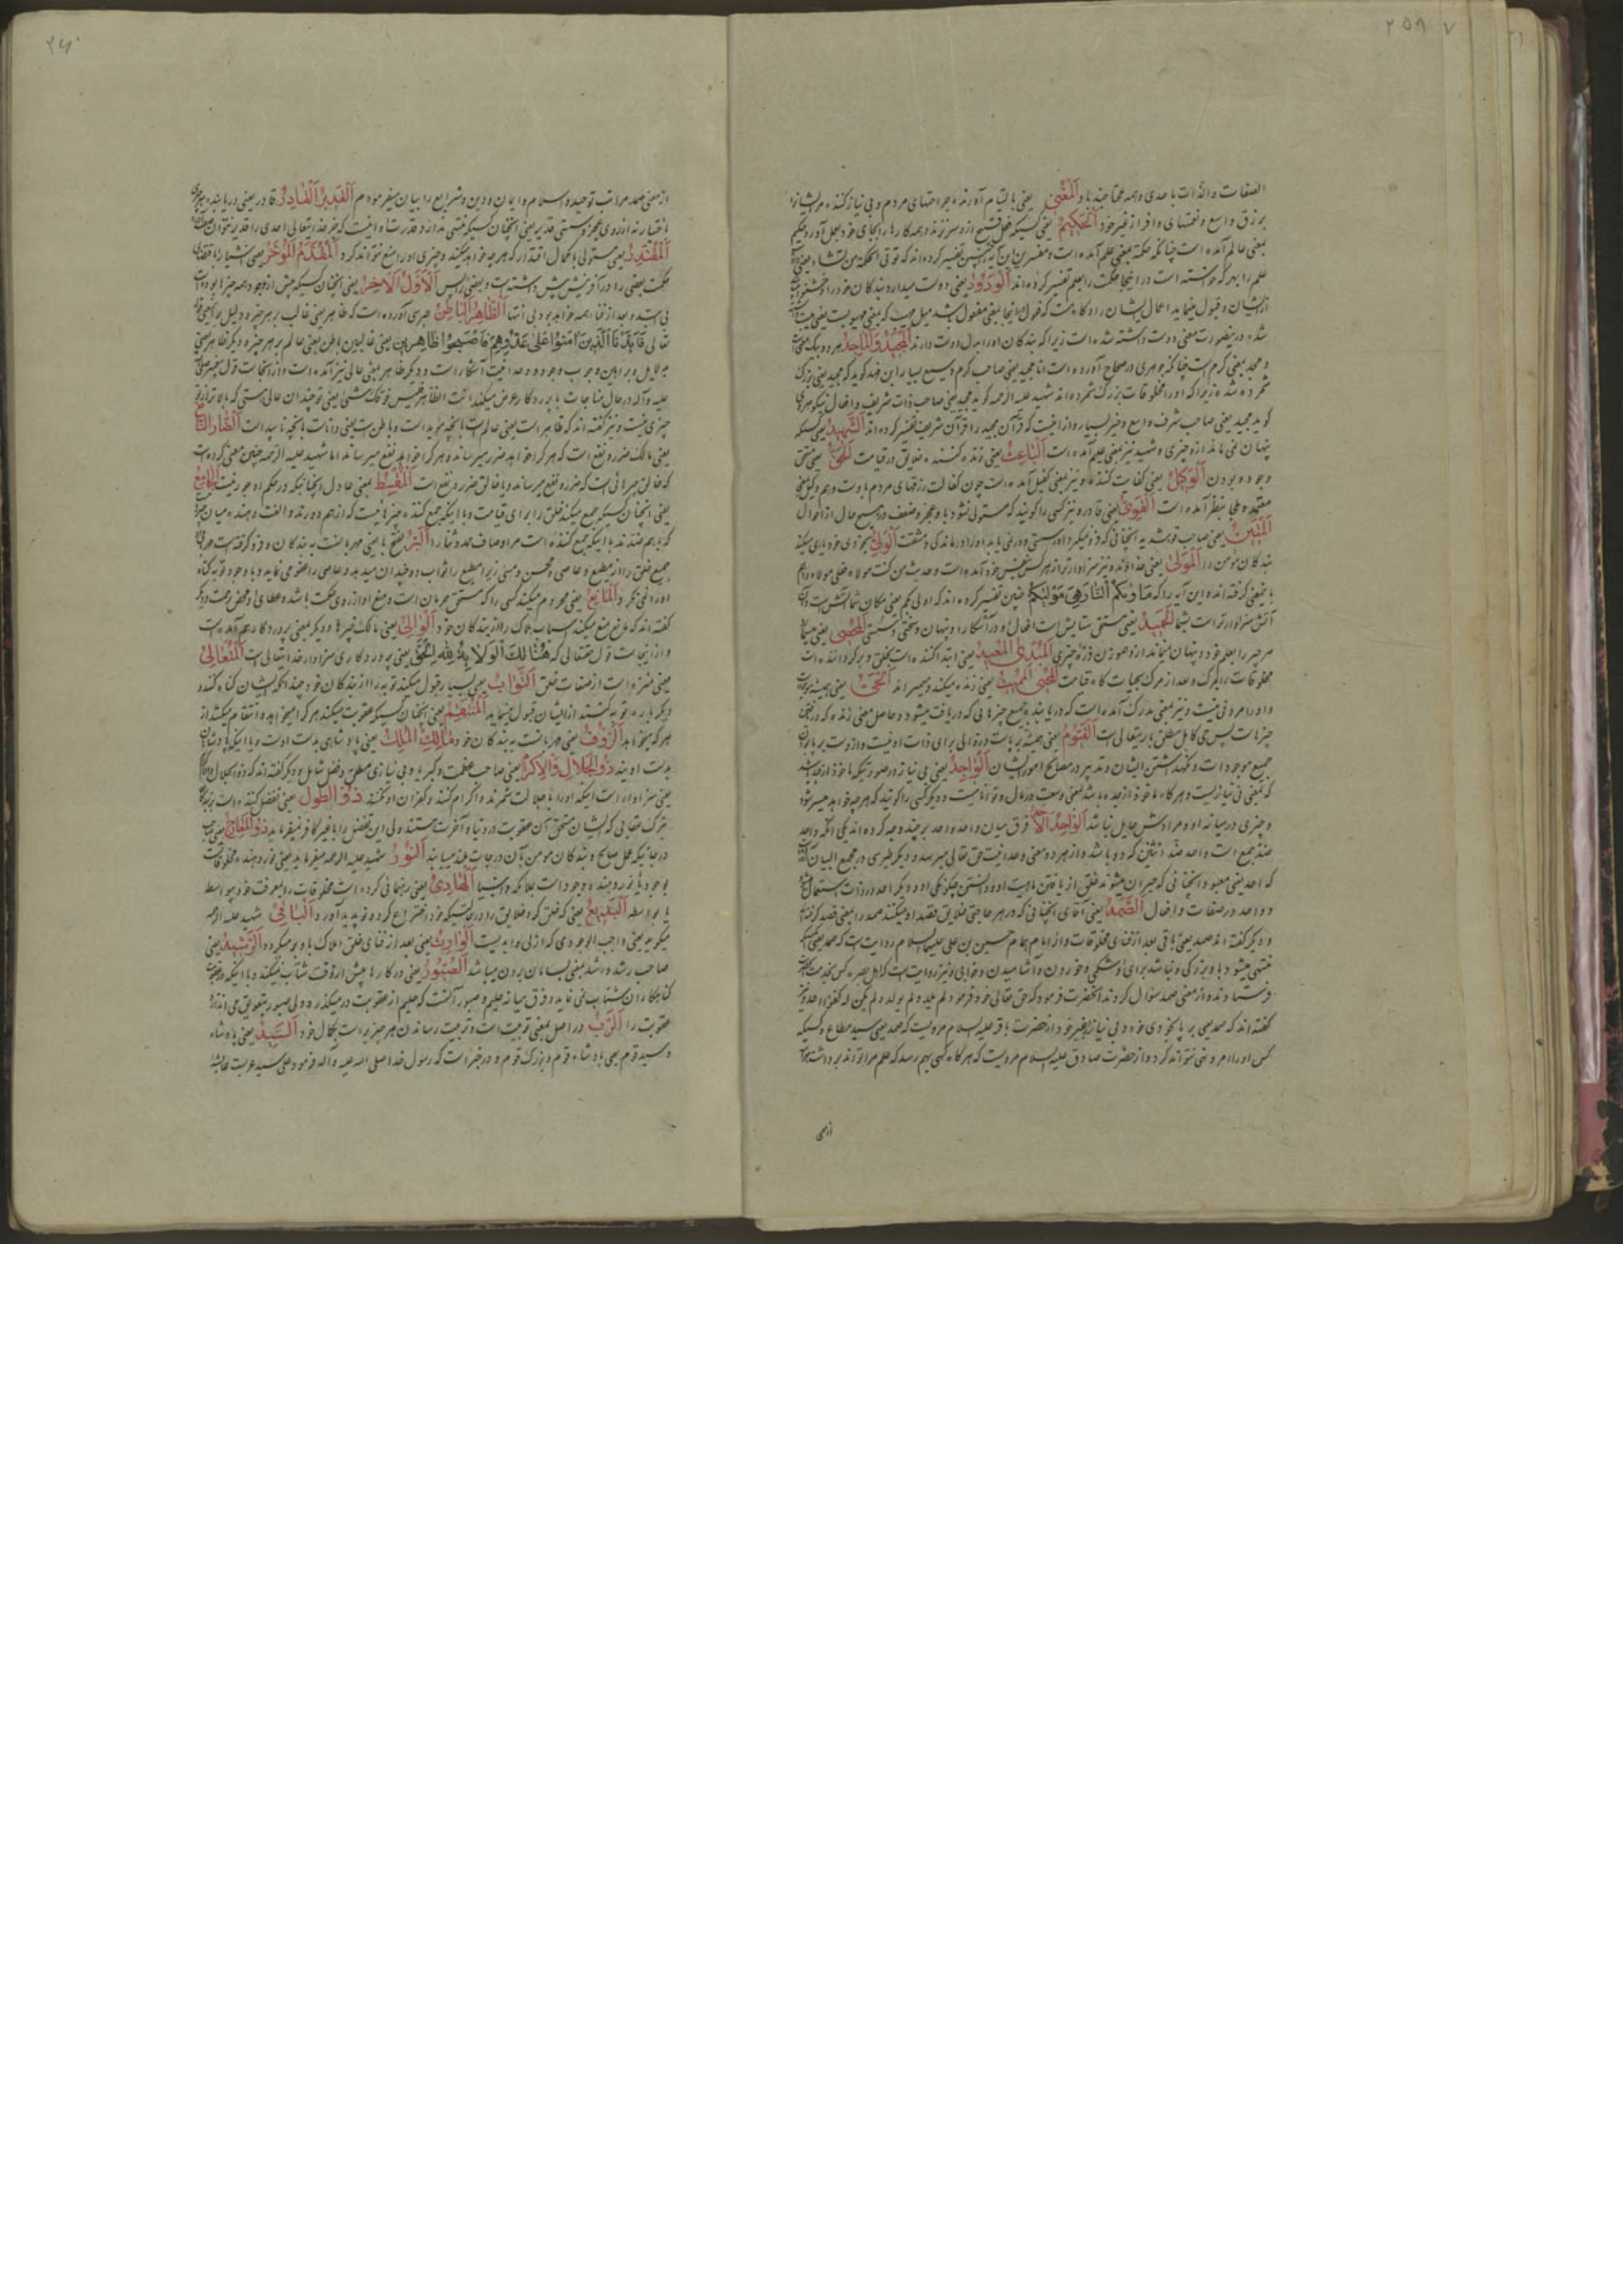 ۲۵۹
الصفات والذات باحدی و همه محتاجند باو اَلْمُغْنی یعنی بالتیام آورنده جراحتهای مردم و بی نیاز کننده مر ایشانرا
برزق واسع و نعمتهای وافر از غیر خود اَلْحَکیمُ یعنی کسیکه فعل قبیح از و سر نزند و همه کارها را بجای خود بعمل آورد و حکیم
بمعنی عالم آمده است چنانکه حکمة بمعنی علم آمده است و مفسرین این آیه را چنین تفسیر کرده‌اند که تؤتی الحکمة من تشاء یعنی
علم را بهر که خواسته است در اینجا حکمت را بعلم تفسیر کرده‌اند اَلْوَدُودُ یعنی دوست میدارد بندکان خود را و خشنود
از ایشان و قبول مینماید اعمال ایشان را
شده در ینصورت معنی دوست داشته شده است زیرا که بندکان او را بدل دوست دارند اَلْمَجیدُ وَالْمَاجِدُ هر دو بیک معنی است
و مجد بمعنی کرم است چنانکه جوهری در صحاح آورده است اما مجید یعنی صاحب کرم وسیع بسیار ابن فهد کوید که مجید یعنی بزرک
شمرده شده زیرا که او را مخلوقات بزرک شمرده‌اند شهید علیه الرحمه کوید مجید یعنی صاحب ذات شریف و افعال نیکو هروی
کوید مجید یعنی صاحب شرف واسع و خیر بسیار و ازاینست که قرآن مجید را قرآن شریف تفسیر کرده‌اند اَلشَّهیدُ یعنی کسیکه
پنهان نمی ماند از و چیزی و شهید نیز بمعنی علیم آمده است اَلْبَاعِثُ یعنی زنده کننده خلایق در قیامت اَلْحَقُّ یعنی متحقق
وجود و بودن اَلْوَکیلُ یعنی کفایت کننده و نیز بمعنی کفیل آمده است چون کفالت رزقهای مردم باوست و هم وکیل بمعنی
معتمد و ملجأ بنظر آمده است اَلْقَوِیُّ یعنی قادر و نیز کسی را کویند که مستولی نشود باو عجز و ضعف در هیچ حال از احوال
اَلْمَتینُ یعنی صاحب قوت شدید آنچنانی که فرو نمیکیرد او را سستی و در نمی یابد او را درماندکی و مشقت اَلْوَلِیُّ بخودی خود یاری میکند
بندکان مؤمن را اَلْمَوْلیٰ یعنی خداوند و نیز سزاوارتر از هر کس بنفس خود آمده است و حدیث من کنت مولاه فعلی مولاه را هم
باینمعنی کرفته‌اند و این آیه را که مَأْوٰیکُمُ النَّارُ هِیَ مَوْلٰیکُمْ چنین تفسیر کرده‌اند که اولی بکم یعنی مکان شما آتش است و آن
آتش سزاوارتر است بشما اَلْحَمیدُ یعنی مستحق ستایش است افعال او در آشکارا و پنهان و سختی و سستی اَلْمُحْصی یعنی
هر چیز را بعلم خود و پنهان نمیماند از و هموزن ذره چیزی اَلْمُبْدِئُ الْمُعیدُ یعنی ابتدا کننده است بخلق و بر کرداننده است
مخلوقات را بمرک و بعد از مرک بحیات کاه قیامت اَلْمُحْیی الْمُمیتُ یعنی زنده میکند و میمیراند اَلْحَیُّ یعنی همیشه موجود است
و او را مردنی نیست و نیز بمعنی مدرک آمده است که دریابنده جمیع چیزهائی که دریافت میشود و حاصل معنی زنده که در یعنی
چیزهاست پس حی کامل مطلق باریتعالی است اَلْقَیُّومُ یعنی همیشه برپاست
جمیع موجودات و نکهداشتن ایشان و تدبیر در مصالح امور ایشان اَلْوَاجِدُ یعنی بی نیاز در صورتیکه ماخوذ از جده باشد
که بمعنی بی نیازیست و هرکاه ماخوذ از جده باشد یعنی وسعت در مال و توانائیست و دیکر کسی را کویند که هرچه خواهد میسر شود
و چیزی در میانه او و مرادش حایل نباشد اَلْوَاحِدُ الْأَحَدُ فرق میان واحد و احد بر چند وجه کرده‌اند یکی آنکه واحد
ضد جمع است و احد ضد اثنین که دو باشد و از هر دو معنی وحدانیت حق تعالی میرسد و دیکر طبرسی در مجمع البیان
که احد یعنی معبود آنچنانی که حیران میشوند خلق از یافتن ماهیت او و دانستن چکونکی او و دیکر احد در ذات استعمال
و واحد در صفات و افعال اَلصَّمَدُ یعنی آقای آنچنانی که در هر حاجتی خلایق قصد او میکنند صمد را بمعنی قصد کرفته‌اند
و دیکر کفته‌اند صمد یعنی باقی بعد از فنای مخلوقات و از امام همام حسین بن علی علیهما السلام روایت است که صمد یعنی کسیکه
منتهی میشود باو بزرکی و نباشد برای او شکمی و خوردن و آشامیدن و خوابی و نیز روایت است که اهل بصره کس بخدمت
فرستادند و از معنی صمد سؤال کردند آنحضرت فرمود که حق تعالی خود فرموده لم یلد و لم یولد و لم یکن له کفوا احد و نیز
کفته‌اند که صمد یعنی برپا بخودی خود و بی نیاز از غیر خود از حضرت باقر علیه السلام مرویست که صمد یعنی سید مطاع و کسیکه
کس او را امر و نهی نتواند کرد و از حضرت صادق علیه السلام مرویست که هرکاه کسی بهم رسد که علم مرا تواند برداشت
ازمعنی
۲۶۰
ازمعنی صمد مراتب توحید و اسلام و ایمان و دین و شرایع را بیان میفرمودم اَلْقَدیرُ الْقَادِرُ قادر یعنی دریابنده هر چیزی
باختیار نه از روی عجز و سستی قدیر یعنی آنچنان کسیکه منتهی ندارد قدرت او و ازاینست که غیر خدایتعالی احدی را قدیر نتوان
اَلْمُقْتَدِرُ یعنی مستولی بکمال اقتدار که هرچه خواهد میکند و چیزی او را منع نتواند کرد اَلْمُقَدِّمُ الْمُؤَخِّرُ یعنی اشیا را بمقتضای
حکمت بعضی را در آفرینش پیش داشته است و بعضی را پس اَلْأَوَّلُ الْآخِرُ یعنی آنچنان کسیکه پیش از وجود همه چیزها بود
بی ابتدا و بعد از فنا همه خواهد بود بی انتها اَلظَّاهِرُ الْبَاطِنُ هروی آورده است که ظاهر یعنی غالب بر هر چیز و دلیل بر این قول
تعالی فَأَیَّدْنَا الَّذینَ آمَنُوا عَلیٰ عَدُوِّهِمْ فَأَصْبَحُوا ظَاهِرینَ یعنی غالبین باطن یعنی عالم بر هر چیز و دیکر ظاهر یعنی
بدلایل و براهین وجوب وجود و وحدانیت آشکار است و دیکر ظاهر بمعنی عالی نیز آمده است و از اینجاست قول پیغمبر صلی
علیه وآله در حال مناجات با پروردکار عرض میکند انت الظاهر فلیس فوقک شئ یعنی تو چندان عالی هستی که بالاتر از تو
چیزی نیست و نیز کفته‌اند که ظاهر است یعنی عالم است بانچه هویداست و باطن است یعنی داناست بانچه ناپیداست اَلضَّارُّ النَّافِعُ
یعنی مالک ضرر و نفع است که هر کرا خواهد ضرر میرساند و هر کرا خواهد نفع میرساند اما شهید علیه الرحمه چنین معنی کرده است
که خالق چیزهائی است که ضرر و نفع میرساند و یا خالق ضرر و نفع است اَلْمُقْسِطُ بمعنی عادل آنچنانیکه در حکم او جور نیست اَلْجَامِعُ
یعنی آنچنان کسیکه جمع میکند خلق را برای قیامت و یا اینکه جمع کننده چیزهائیست که از هم دورند و الفت دهنده میان
که باهم ضدند یا اینکه جمع کننده است مر اوصاف حمد و ثنا را اَلْبَرُّ بفتح با یعنی مهربانست به بندکان و فرو کرفته است
جمیع خلق را از مطیع و عاصی و محسن و مسئ زیرا مطیع را ثواب دو چندان میدهد و عاصی را عفو می نماید و با وجود توبه کناه
او را نمی نکرد وَالْمَانِعُ یعنی محروم میکند کسی را که مستحق حرمان است و منع او از روی حکمت باشد و عطای او محض رحمت و دیکر
کفته‌اند که مانع منع میکند اسباب هلاک را از بندکان خود اَلْوَالی یعنی مالک چیزها و دیکر بمعنی پروردکار هم آمده است
و از اینجاست قول حقتعالی که هُنَالِکَ الْوَلَایَةُ لِلّٰهِ الْحَقِّ یعنی پروردکاری سزاوار خدایتعالی است اَلْمُتَعَالی
یعنی منزه است از صفات خلق اَلتَّوَّابُ یعنی بسیار قبول میکند توبه را از بندکان خود چندانکه ایشان کناه کنند و
دیکر باره توبه کنند از ایشان قبول مینماید اَلْمُنْتَقِمُ یعنی آنچنان کسیکه عقوبت میکند هر کرا میخواهد و انتقام میکشد از
هر که میخواهد اَلرَّؤُفُ یعنی مهربانست به بندکان خود مَالِکُ الْمُلْکِ یعنی پادشاهی بدست اوست و یا اینکه پادشاهان
بدست اویند ذُو الْجَلَالِ وَالْإِکْرَامِ یعنی صاحب عظمت و کبریا و بی نیازی مطلق و فضل شامل و دیکر کفته‌اند که ذو الجلال
یعنی سزاوار است اینکه او را با جلالت شمرند و اکرام کنند و کفران او نکنند ذُو الطَّوْلِ یعنی تفضل کننده است
بترک عقابی که ایشان مستحق آن عقوبت در دنیا و آخرت هستند ولی این تفضل را با غیر کافر میفرماید ذُو الْمَعَارِجِ یعنی صاحب
درجاتیکه عمل صالح و بندکان مؤمن بآن درجات بلند میبابند اَلنُّورُ شهید علیه الرحمه میفرماید یعنی نور دهنده مخلوقات
بوجود یا نور دهنده موجودات بملائکه و انبیا اَلْهَادی یعنی رهنمائی کرده است مخلوقات را بمعرفت خود بیواسطه
یا بواسطه اَلْبَدیعُ یعنی که خلق کرد خلایق را در حالتیکه خود اختراع کرد و نو پدید آورد اَلْبَاقی شهید علیه الرحمه
میکوید یعنی واجب الوجودی که ازلی و ابدیست اَلْوَارِثُ یعنی بعد از فنای خلق املاک باو بر میکردد اَلرَّشیدُ یعنی
صاحب رشد و رشد بمعنی بسامان بودن میباشد اَلصَّبُورُ یعنی در کارها پیش از وقت شتاب نمیکند و یا اینکه در عقوبت
کناهکاران شتاب نمی نماید و فرق میانه حلیم و صبور آنست که حلیم از عقوبت در میکذرد ولی صبور بتعویق می اندازد
عقوبت را اَلرَّبُّ در اصل بمعنی تربیت است و تربیت رساندن هر چیز است بکمال خود اَلسَّیِّدُ یعنی پادشاه
و سید قوم یعنی پادشاه قوم و بزرک قوم و در خبر است که رسول خدا صلی الله علیه وآله فرمود علی سید عربست عایشه